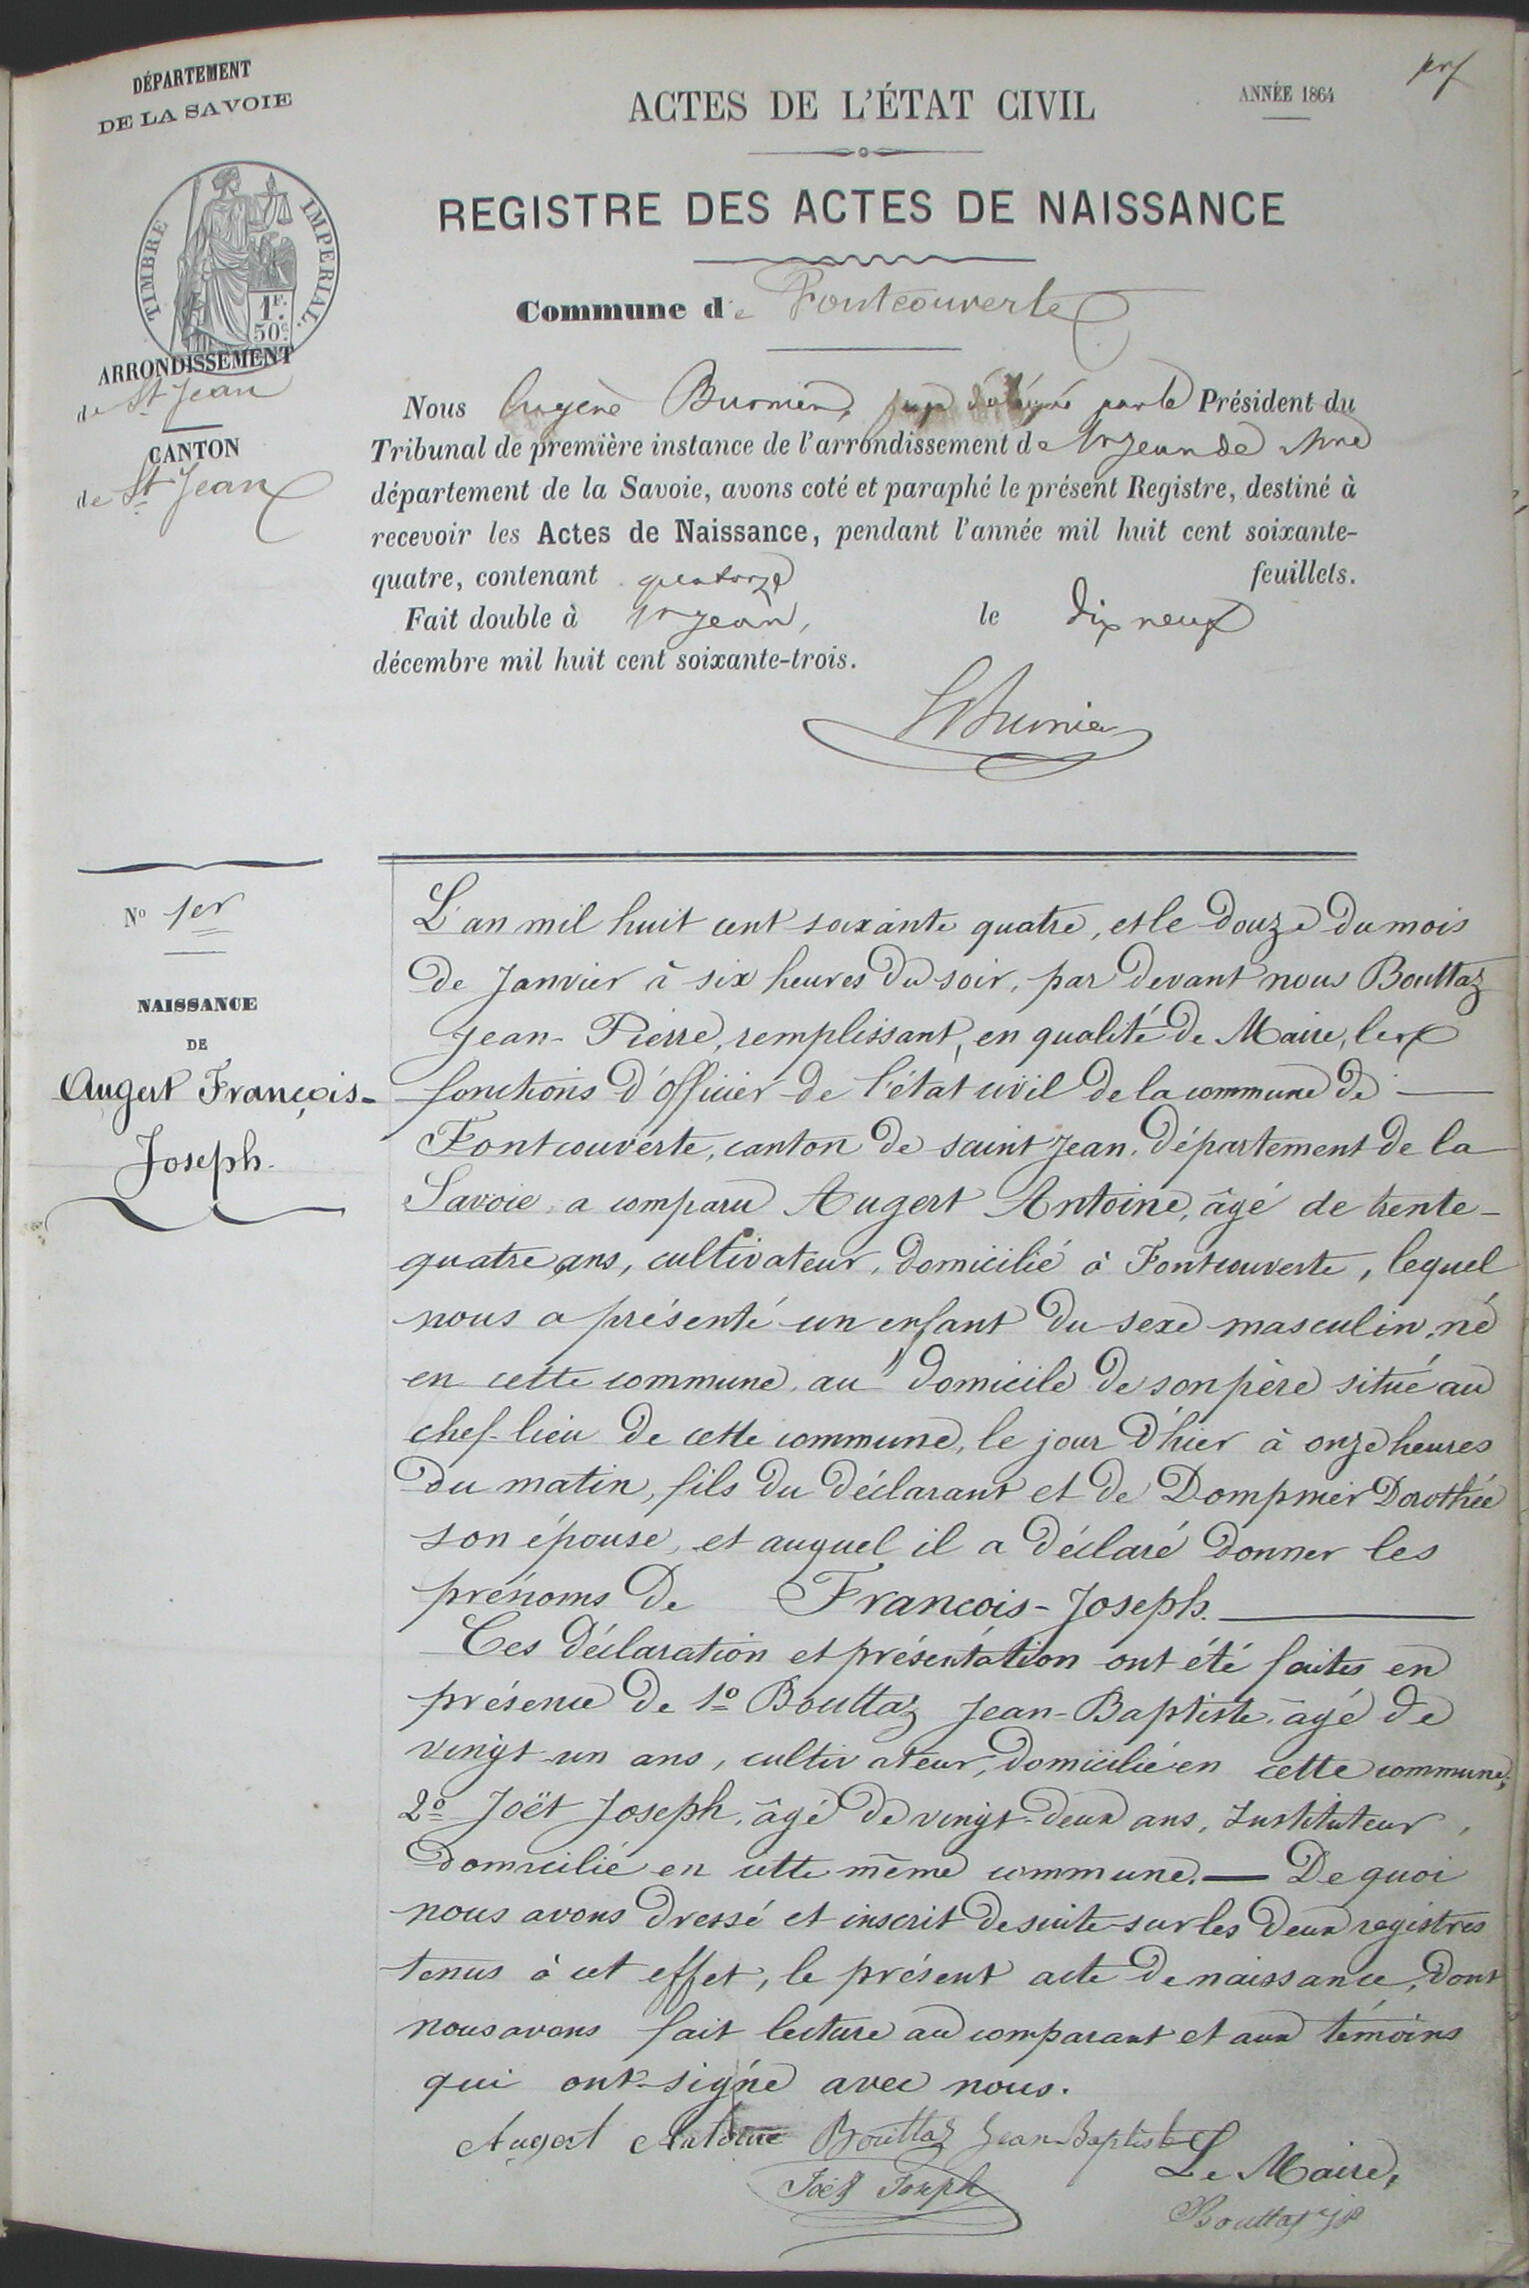 DÉPARTEMENT
DE LA SAVOIE
ACTES DE L'ÉTAT CIVIL
ANNÉE 1864
REGISTRE DES ACTES DE NAISSANCE
TIMBRE IMPERIAL.
1F.
50c.
Commune de Fontcouverte
ARRONDISSEMENT
de St Jean
CANTON
de St Jean
Nous Eugène juge délégué par le Président du
Tribunal de première instance de l'arrondissement de St Jean de Mne
département de la Savoie, avons coté et paraphé le présent Registre, destiné à
recevoir les Actes de Naissance, pendant l'année mil huit cent soixante-
quatre, contenant quatorze feuillets.
Fait double à St Jean, le dix neuf
décembre mil huit cent soixante-trois.
No 1er
NAISSANCE
DE
Augert François-
Joseph.
L'an mil huit cent soixante quatre, et le douze du mois
de Janvier à six heures du soir, par devant nous Bouttaz
Jean-Pierre, remplissant, en qualité de Maire, les
fonctions d'officier de l'état civil de la commune de
Fontcouverte, canton de saint Jean, département de la
Savoie, a comparu Augert Antoine, âgé de trente-
quatre ans, cultivateur, domicilié à Fontcouverte, lequel
nous a présenté un enfant du sexe masculin, né
en cette commune, au domicile de son père situé au
chef-lieu de cette commune, le jour d'hier à onze heures
du matin, fils du déclarant et de Dompnier Dorothée
son épouse, et auquel il a déclaré donner les
prénoms de François-Joseph.
Ces déclaration et présentation ont été faites en
présence de 1o Bouttaz Jean-Baptiste, âgé de
vingt-un ans, cultivateur, domicilié en cette commune,
2o Joët Joseph, âgé de vingt-deux ans, Instituteur,
domicilié en cette même commune. — De quoi
nous avons dressé et inscrit de suite sur les deux registres
tenus à cet effet, le présent acte de naissance, dont
nous avons fait lecture au comparant et aux témoins
qui ont signé avec nous.
Augert Antoine Bouttaz Jean-Baptiste
Joët Joseph
Le Maire,
Bouttaz JP